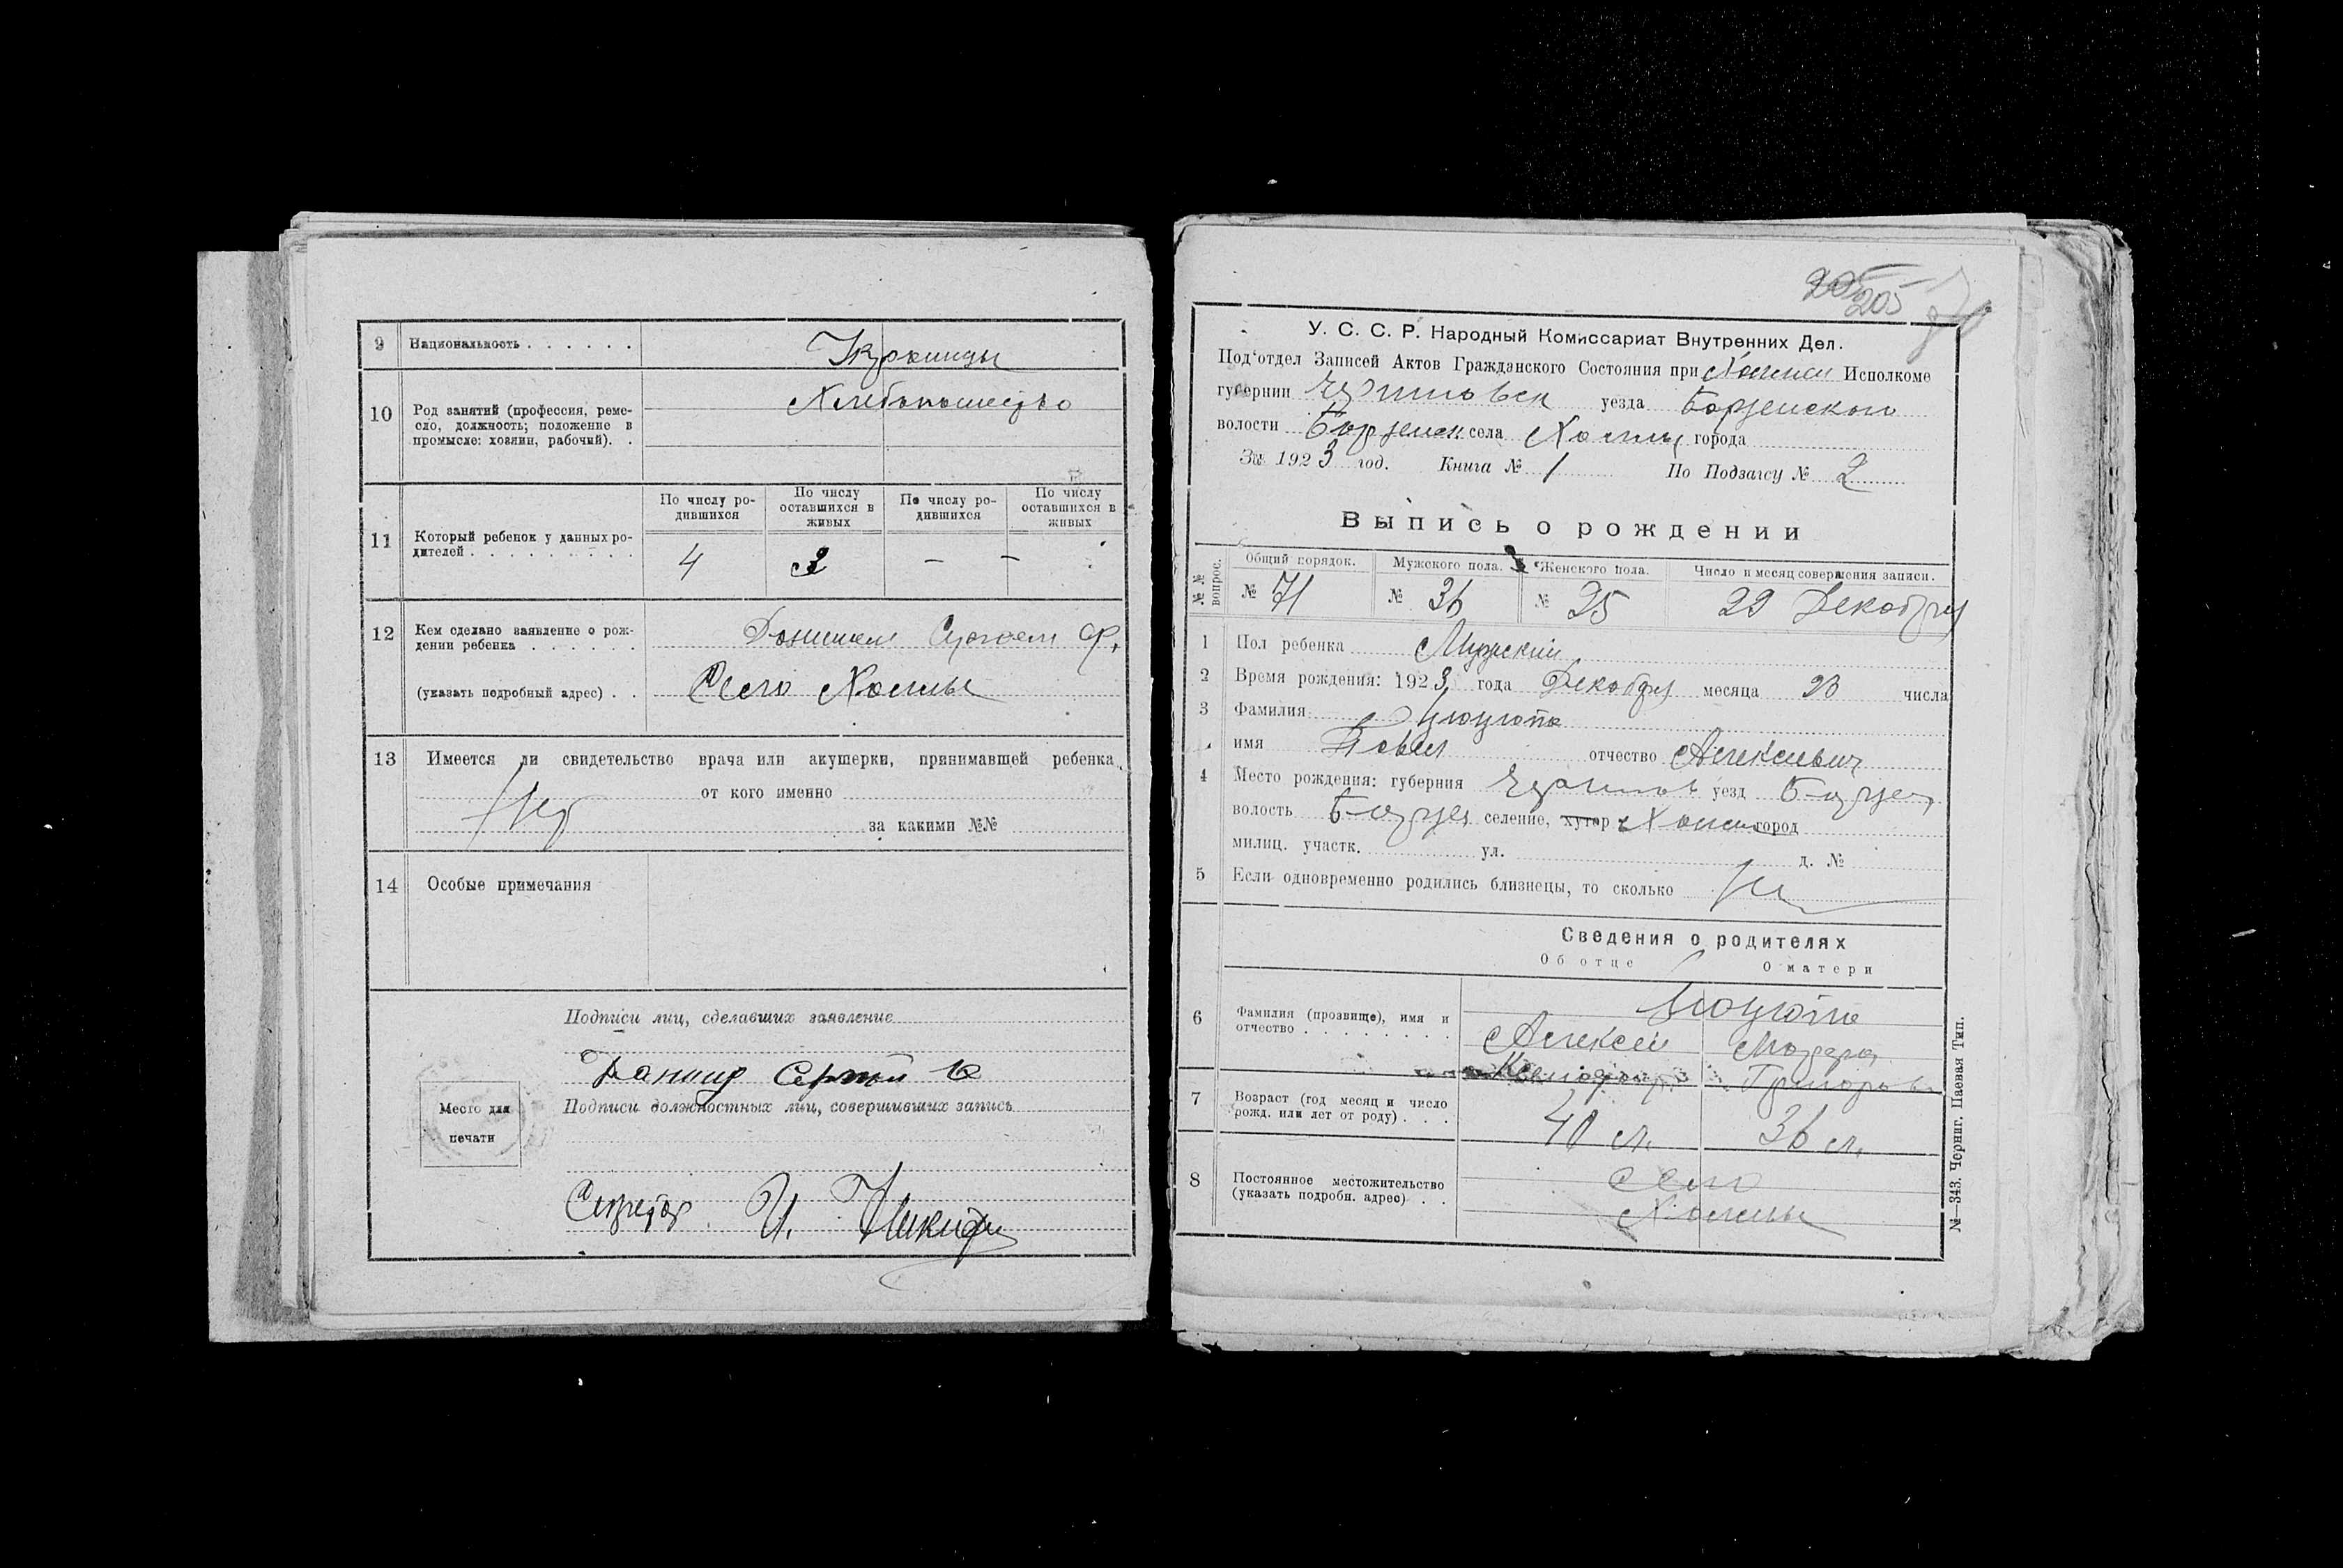 9 Национальность . . . . . . Украинцы
10 Род занятий (профессия, реме-
сло, должность; положение в
промысле: хозяин, рабочий). .
Хлебопашество
По числу ро-
дившихся
По числу
оставшихся в
живых
По числу ро-
дившихся
По числу
оставшихся в
живых
11 Который ребенок у данных ро-
дителей . . . . . . . . .
4 3 — —
12 Кем сделано заявление о рож-
дении ребенка . . . . . .
Сергеем Ф.
(указать подробный адрес) . . Село Холмы
13 Имеется ли свидетельство врача или акушерки, принимавшей ребенка
Нет от кого именно
за какими №№
14 Особые примечания
Подписи лиц, сделавших заявление
Сергей
Подписи должностных лиц, совершивших запись
Место для
печати
Секретар И.
205 205
У. С. С. Р. Народный Комиссариат Внутренних Дел.
Под'отдел Записей Актов Гражданского Состояния при Холмском Исполкоме
губернии Черниговск уезда Борзенского
волости Борзенск села Холмы города
За 1923 год. Книга № 1 По Подзагсу № 2
Выпись о рождении
№№ вопрос.
Общий порядок. Мужского пола. Женского пола. Число и месяц совершения записи.
№ 71 № 36 № 25 29 Декабря
1 Пол ребенка Мужский
2 Время рождения: 1923 года Декабря месяца 23 числа
3 Фамилия
имя Павел отчество Алексеевич
4 Место рождения: губерния Чернигов уезд Борзен
волость Борзен селение, хутор Холмы город
милиц. участк. ул. д. №
5 Если одновременно родились близнецы, то сколько
Сведения о родителях
Об отце О матери
6 Фамилия (прозвище), имя и
отчество . . . . . . . .
Алексей
Григорьев
7 Возраст (год месяц и число
рожд. или лет от роду) . . .
40 л. 36 л.
8 Постоянное местожительство
(указать подробн. адрес) . .
Село
Холмы
№—343. Черниг. Паевая Тип.